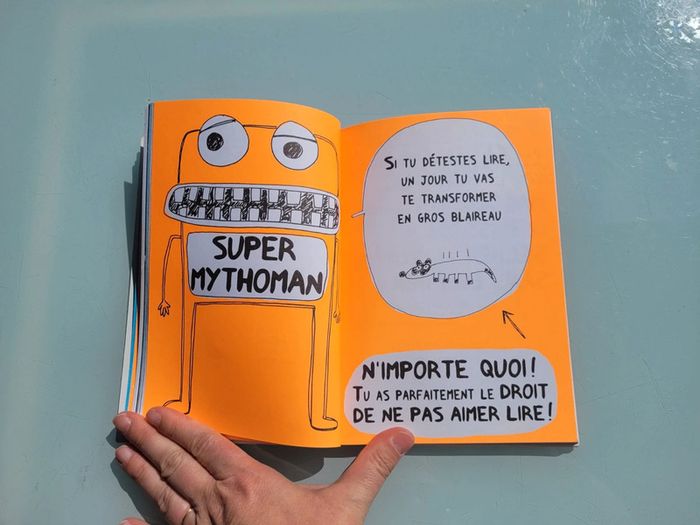 SUPER
MYTHOMAN
SI TU DÉTESTES LIRE,
UN JOUR TU VAS
TE TRANSFORMER
EN GROS BLAIREAU
N'IMPORTE QUOI!
TU AS PARFAITEMENT LE DROIT
DE NE PAS AIMER LIRE!